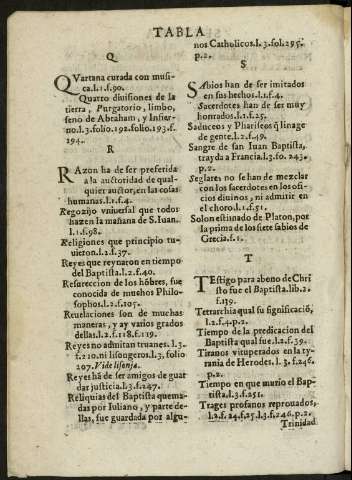 TABLA
Q
QVartana curada con musi-
ca.l.1.f.90.
Quatro diuisiones de la
tierra, Purgatorio, limbo,
seno de Abraham, y Infier-
no.l.3.folio.192.folio.193.f.
294.
R
RAzon ha de ser preferida
a la auctoridad de qual-
quier auctor, en las cosas
humanas.l.1.f.4.
Regozijo vniuersal que todos
hazen la mañana de S. Iuan.
l.1.f.98.
Religiones que principio tu-
uieron.l.2.f.37.
Reyes que reynaron en tiempo
del Baptista.l.2.f.40.
Resurreccion de los hõbres, fue
conocida de muchos Philo-
sophos.l.2.f.105.
Reuelaciones son de muchas
maneras, y ay varios grados
dellas.l.2.f.118.f.119.
Reyes no admitan truanes.l.3.
f.210.ni lisongeros.l.3, folio
207. Vide lisonja.
Reyes hã de ser amigos de guar
dar justicia.l.3.f.247.
Reliquias del Baptista quema-
das por Iuliano, y parte de-
llas, fue guardada por algu-
nos Catholicos.l.3.fol.295.
p.2.
S
SAbios han de ser imitados
en sus hechos.l.1.f.4.
Sacerdotes han de ser muy
honrados.l.1.f.25.
Saduceos y Phariseos q̃ linage
de gente.l.2.f.49.
Sangre de san Iuan Baptista,
trayda a Francia.l.3.fo.243.
p.2.
Seglares no se han de mezclar
con los sacerdotes en los ofi-
cios diuinos, ni admitir en
el choro.l.1.f.51.
Solon estimado de Platon, por
la prima de los siete sabios de
Grecia.f.1.
T
TEstigo para abono de Chri
sto fue el Baptista.lib.2.
f.139.
Tetrarchia qual su significació,
l.2.f.4.p.2.
Tiempo de la predicacion del
Baptista qual fue.l.2.f.39.
Tiranos vituperados en la ty-
rania de Herodes.l.3.f.246.
p.2.
Tiempo en que murio el Bap-
tista.l.3.f.251.
Trages profanos reprouados,
l.2.f.24.f.27.l.3.f.246.p.2.
Trinidad